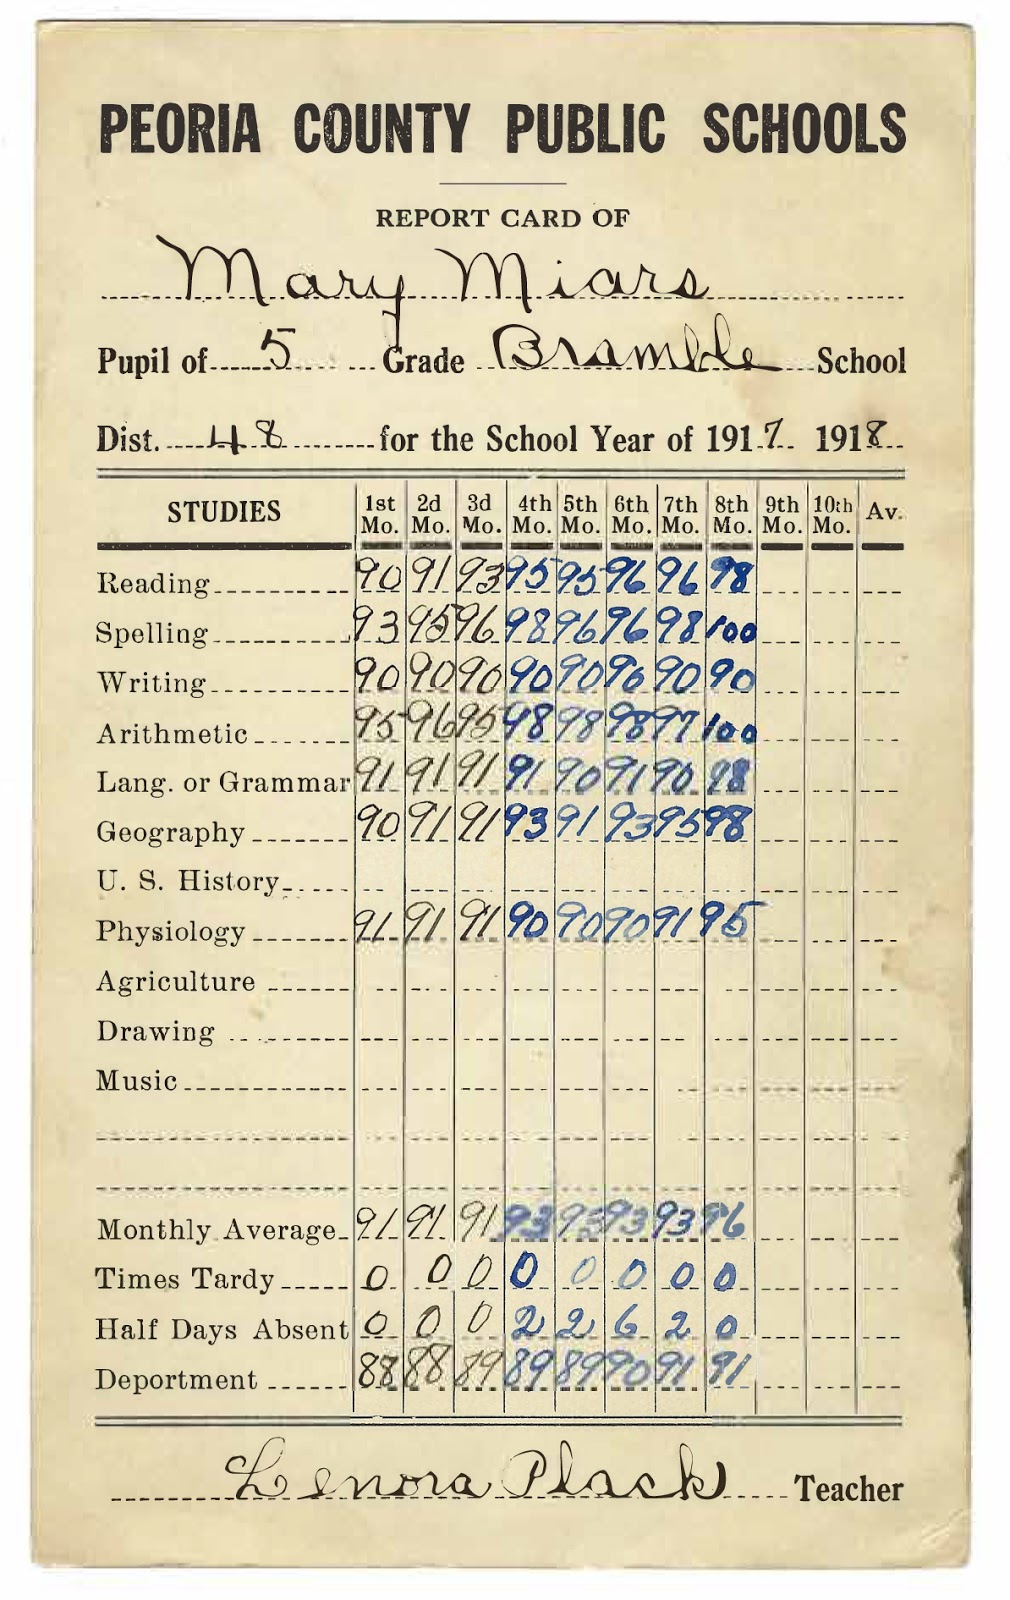 PEORIA COUNTY PUBLIC SCHOOLS
REPORT CARD OF
Mary Miars
Pupil of 5 Grade Bramble School
Dist. 48 for the School Year of 1917 1918
STUDIES 1st Mo. 2d Mo. 3d Mo. 4th Mo. 5th Mo. 6th Mo. 7th Mo. 8th Mo. 9th Mo. 10th Mo. Av.
Reading 90 91 93 95 95 96 96 98
Spelling 93 95 96 98 96 96 98 100
Writing 90 90 90 90 90 90 90 90
Arithmetic 95 96 95 98 98 98 97 100
Lang. or Grammar 91 91 91 91 90 91 90 98
Geography 90 91 91 93 91 93 95 98
U. S. History
Physiology 91 91 91 90 90 90 91 95
Agriculture
Drawing
Music
Monthly Average 91 91 91 93 93 93 93 96
Times Tardy 0 0 0 0 0 0 0 0
Half Days Absent 0 0 0 2 2 6 2 0
Deportment 88 88 89 89 89 90 91 91
Lenora Plack Teacher